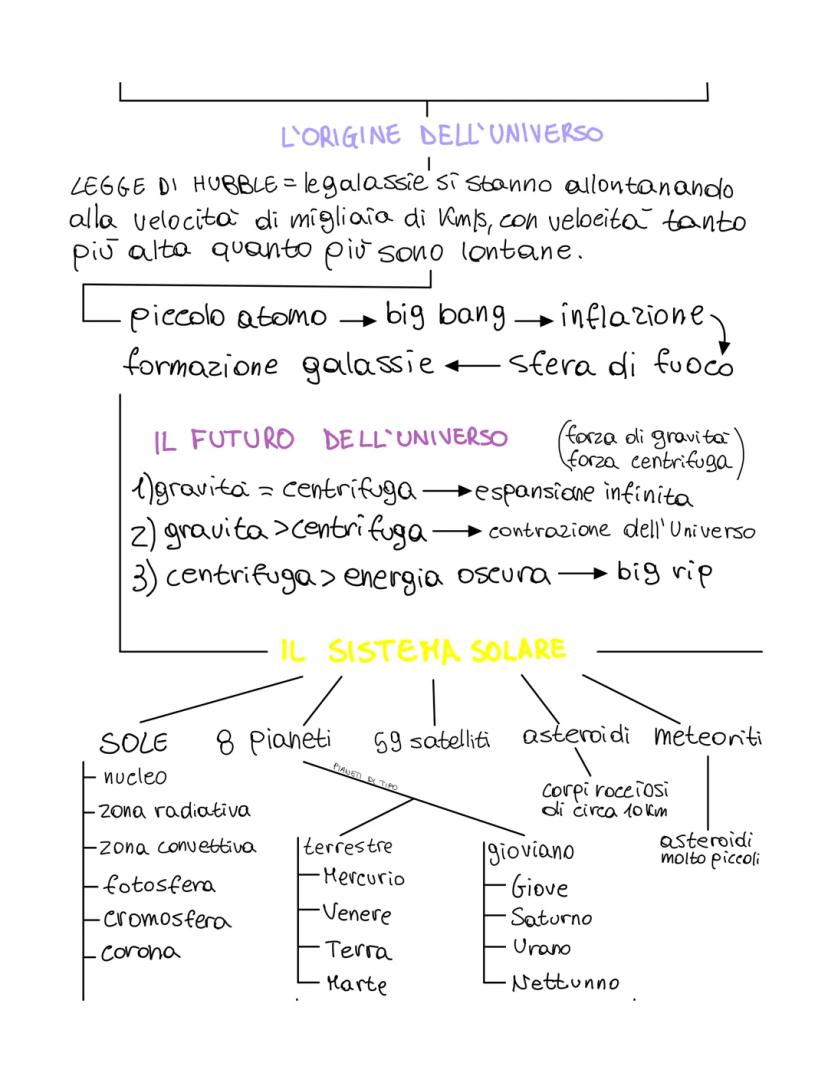 L'ORIGINE DELL'UNIVERSO
LEGGE DI HUBBLE = le galassie si stanno allontanando
alla velocità di migliaia di Km/s, con velocità tanto
più alta quanto più sono lontane.
piccolo atomo → big bang → inflazione
formazione galassie ← sfera di fuoco
IL FUTURO DELL'UNIVERSO
(forza di gravità
forza centrifuga)
1) gravità = centrifuga → espansione infinita
2) gravita > centrifuga → contrazione dell'Universo
3) centrifuga > energia oscura → big rip
IL SISTEMA SOLARE
SOLE 8 pianeti 59 satelliti asteroidi meteoriti
nucleo
zona radiativa
zona convettiva
fotosfera
cromosfera
corona
PIANETI DI TIPO
terrestre
Mercurio
Venere
Terra
Marte
gioviano
Giove
Saturno
Urano
Nettunno
corpi rocciosi
di circa 10 Km
asteroidi
molto piccoli